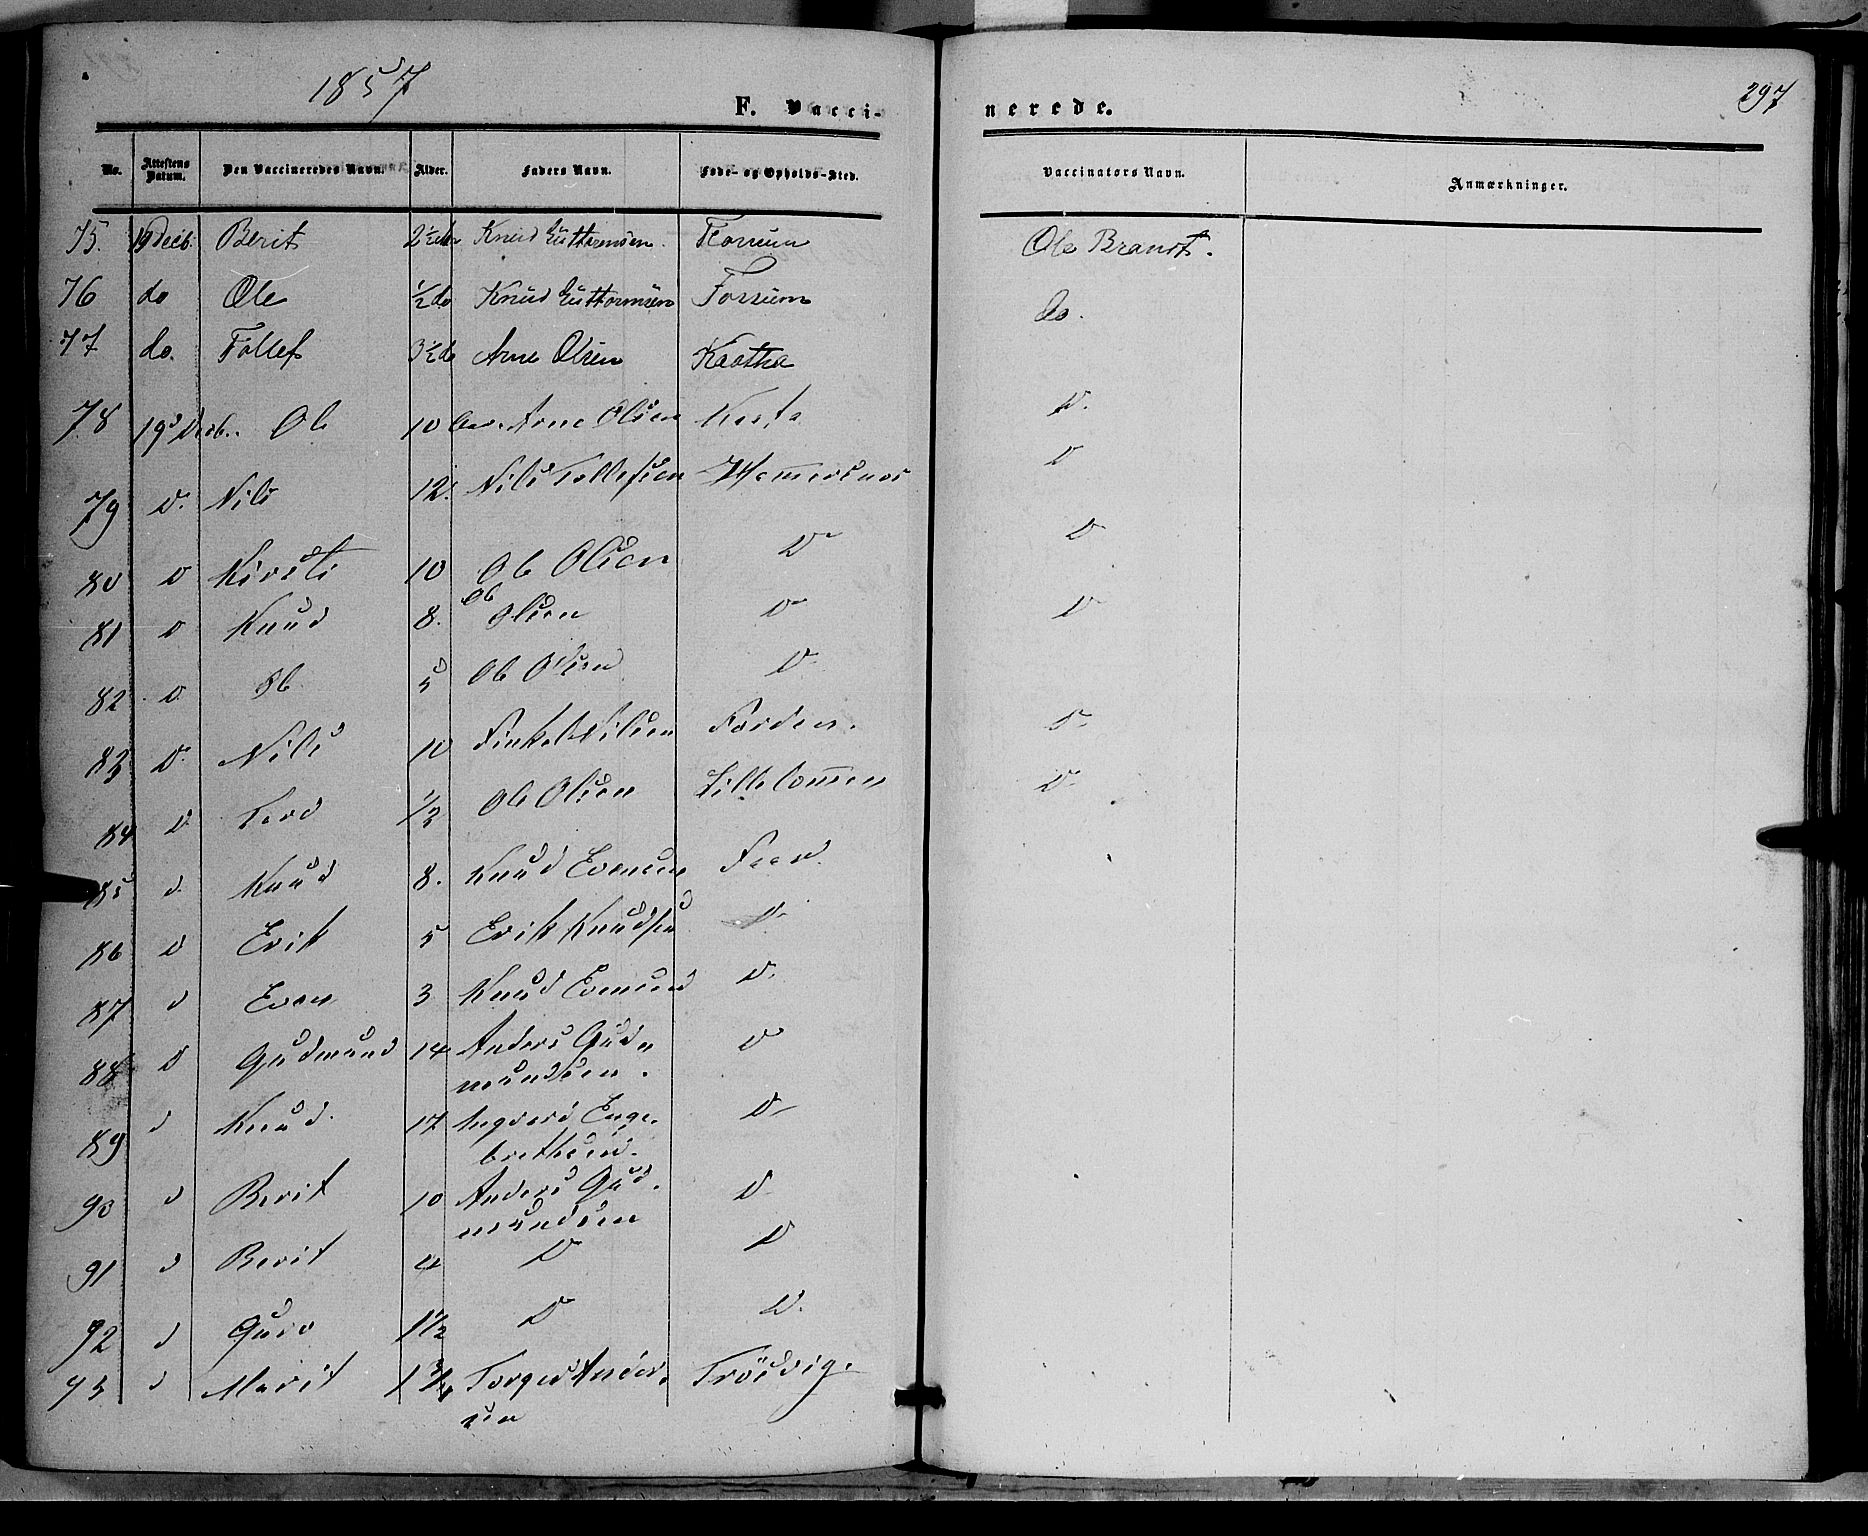 1857
F. Vacci-
nerede.
297
No. Attestens Datum. Den Vaccineredes Navn. Alder. Faders Navn. Føde- og Opholds-Sted. Vaccinators Navn. Anmærkninger.
75. 19 Decb. Berit 2½ Knud Guttormsen. Fossum Ole Brandt.
76 do Ole ½ do Knud Guttormsen Fossum do.
77 do. Tollef 3½ do Arne Olsen Kaatha
78 19 Decb. Ole 10 Arne Olsen D.
79 D. Nils 12. Nils Tollefsen D
80 D Kirsti 10 Ole Olsen D D
81 D Knud 8. Ole Olsen D D
82 D. Ole 5 Ole Olsen D
83 D. Nils 10 Nilsen D
84 D. 1/3 Ole Olsen D
85 D Knud 8. Knud
86 D Erik 5 Erik Knudsen D
87 D Even 3 Knud D.
88 D Gudmund 14 Anders Gud-
mundsen. D
89 D Knud. 17 Enge-
brethsen. D
90 D Berit 10 Anders Gud-
mundsen D
91 D Berit 4 D D
92 D Guro 1½ D D.
93 D Marit 1¾ Torger Ander-
sen Trösvig.